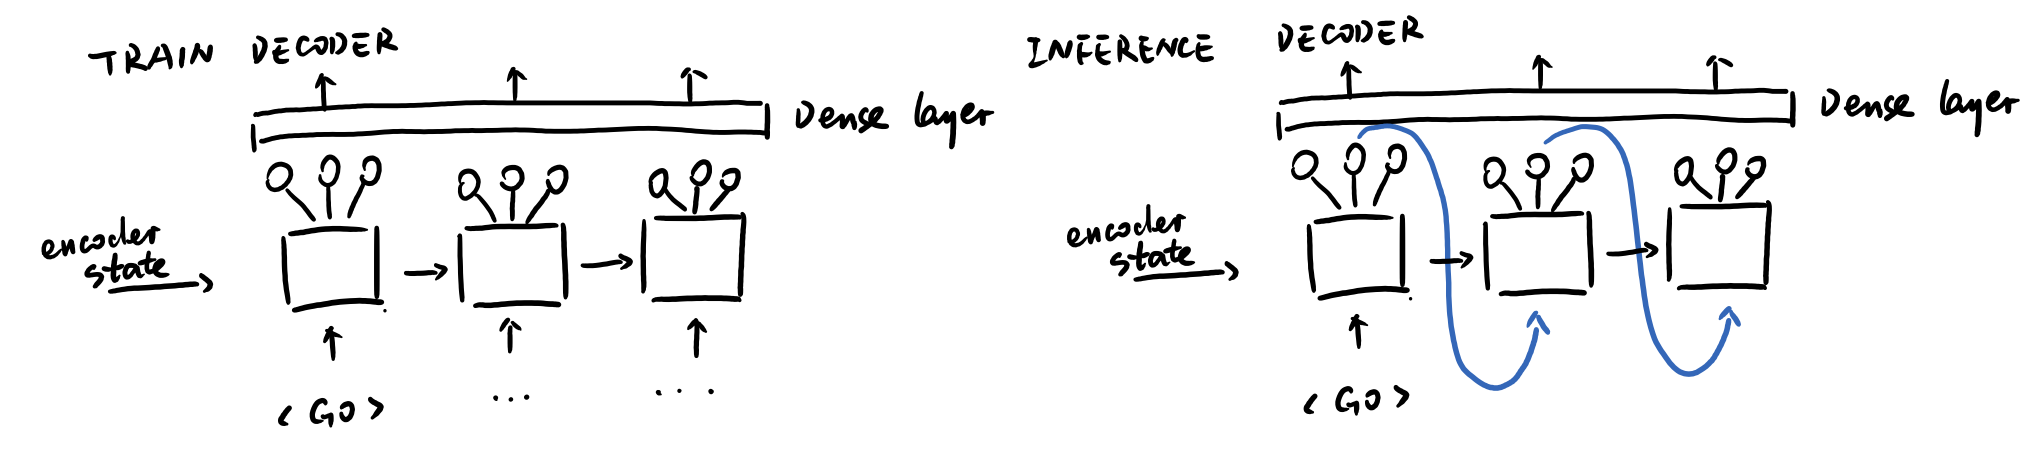 TRAIN DECODER
Dense layer
encoder
state
<GO>
...
...
INFERENCE DECODER
Dense layer
encoder
state
<GO>